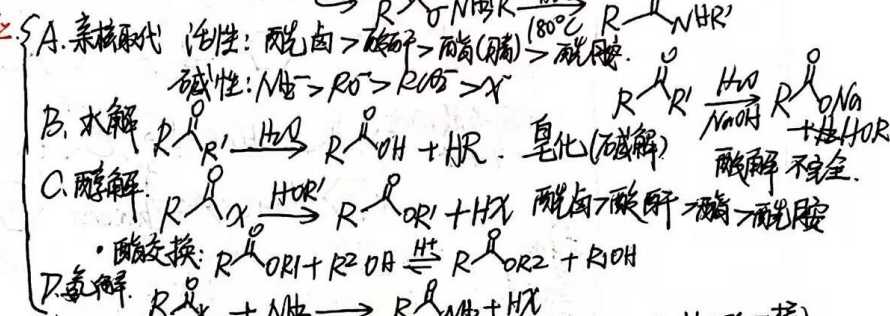 R O-NH3R 180°C R NHR'
A. 亲核取代 活性: 酰卤 > 酸酐 > 酯(腈) > 酰胺.
碱性: NH2⁻ > RO⁻ > RCO2⁻ > X⁻
B. 水解 R O R' H2O → R O OH + HR. 皂化(碱解) R O R' H2O NaOH → R O ONa + HOR
酸解 不完全.
C. 醇解. R O X HOR' → R O OR' + HX 酰卤>酸酐>酯>酰胺
·酯交换: R O OR1 + R2OH H+ ⇌ R O OR2 + R1OH
D. 氨解. R + NH3 → R O NH2 + HX